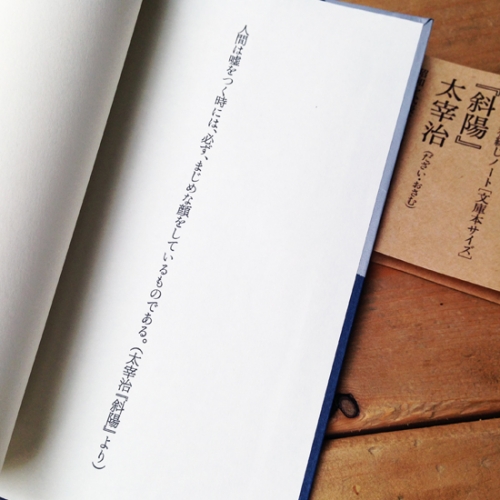 人間は嘘をつく時には、必ず、まじめな顔をしているものである。（太宰治『斜陽』より）
『斜陽』
太宰治
（だざい・おさむ）
しノート［文庫本サイズ］